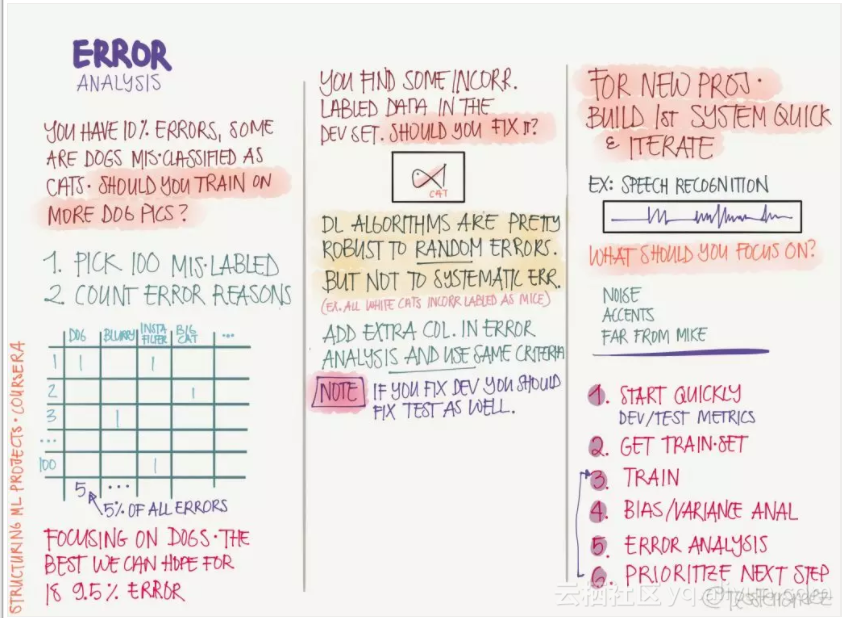 ERROR
ANALYSIS
YOU HAVE 10% ERRORS, SOME
ARE DOGS MIS·CLASSIFIED AS
CATS· SHOULD YOU TRAIN ON
MORE DOG PICS?
1. PICK 100 MIS·LABLED
2. COUNT ERROR REASONS
DOG BLURRY INSTA FILTER BIG CAT ...
1 | |
2 |
3 |
...
100 |
5 ...
5% OF ALL ERRORS
FOCUSING ON DOGS· THE
BEST WE CAN HOPE FOR
IS 9.5% ERROR
STRUCTURING ML PROJECTS · COURSERA
YOU FIND SOME INCORR.
LABLED DATA IN THE
DEV SET. SHOULD YOU FIX IT?
CAT
DL ALGORITHMS ARE PRETTY
ROBUST TO RANDOM ERRORS.
BUT NOT TO SYSTEMATIC ERR.
(EX. ALL WHITE CATS INCORR LABLED AS MICE)
ADD EXTRA COL. IN ERROR
ANALYSIS AND USE SAME CRITERIA
NOTE IF YOU FIX DEV YOU SHOULD
FIX TEST AS WELL.
FOR NEW PROJ·
BUILD 1st SYSTEM QUICK
& ITERATE
EX: SPEECH RECOGNITION
WHAT SHOULD YOU FOCUS ON?
NOISE
ACCENTS
FAR FROM MIKE
1. START QUICKLY
DEV/TEST METRICS
2. GET TRAIN·SET
3. TRAIN
4. BIAS/VARIANCE ANAL
5. ERROR ANALYSIS
6. PRIORITIZE NEXT STEP
云栖社区